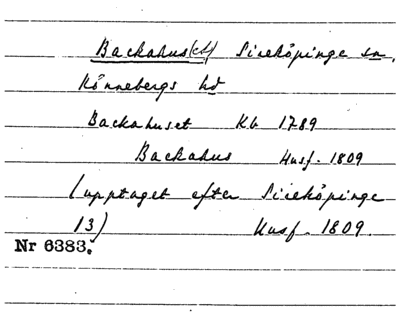 Backahus(et) Sireköpinge sn,
Rönnebergs hd
Backahuset Kb 1789
Backahus Husf. 1809
(upptaget efter Sireköpinge
13) Husf. 1809.
Nr 6383.